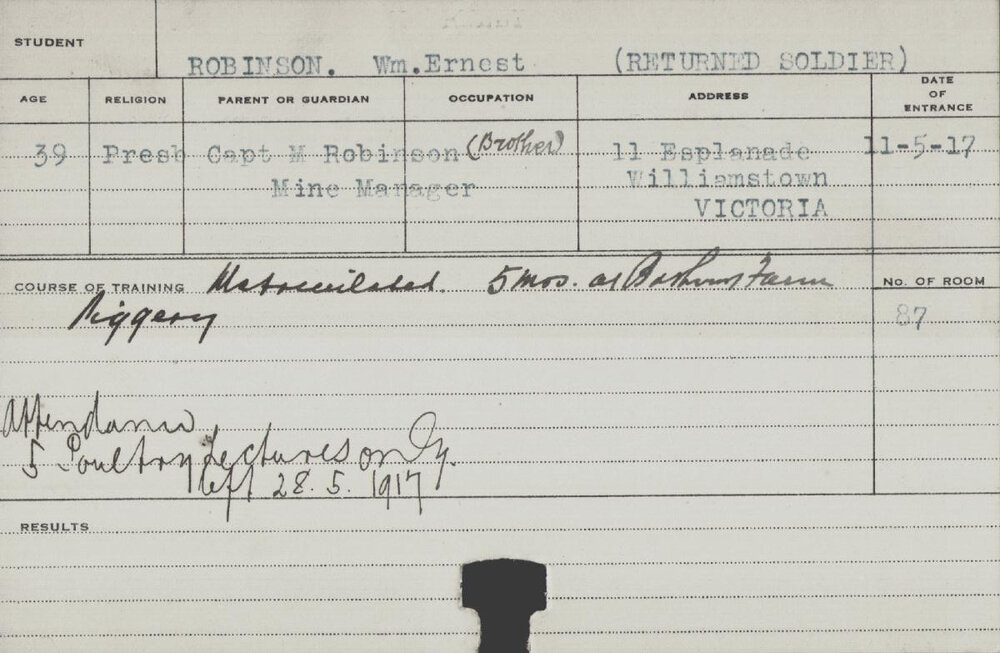 STUDENT
ROBINSON. Wm.Ernest (RETURNED SOLDIER)
AGE RELIGION PARENT OR GUARDIAN OCCUPATION ADDRESS DATE OF ENTRANCE
39 Presb Capt M Robinson (Brother) 11 Esplanade 11-5-17
Mine Manager Williamstown
VICTORIA
COURSE OF TRAINING Matriculated. 5 mos. at Farm No. OF ROOM
Piggery 87
Attendance
5 Poultry Lectures only.
left 28.5.1917
RESULTS